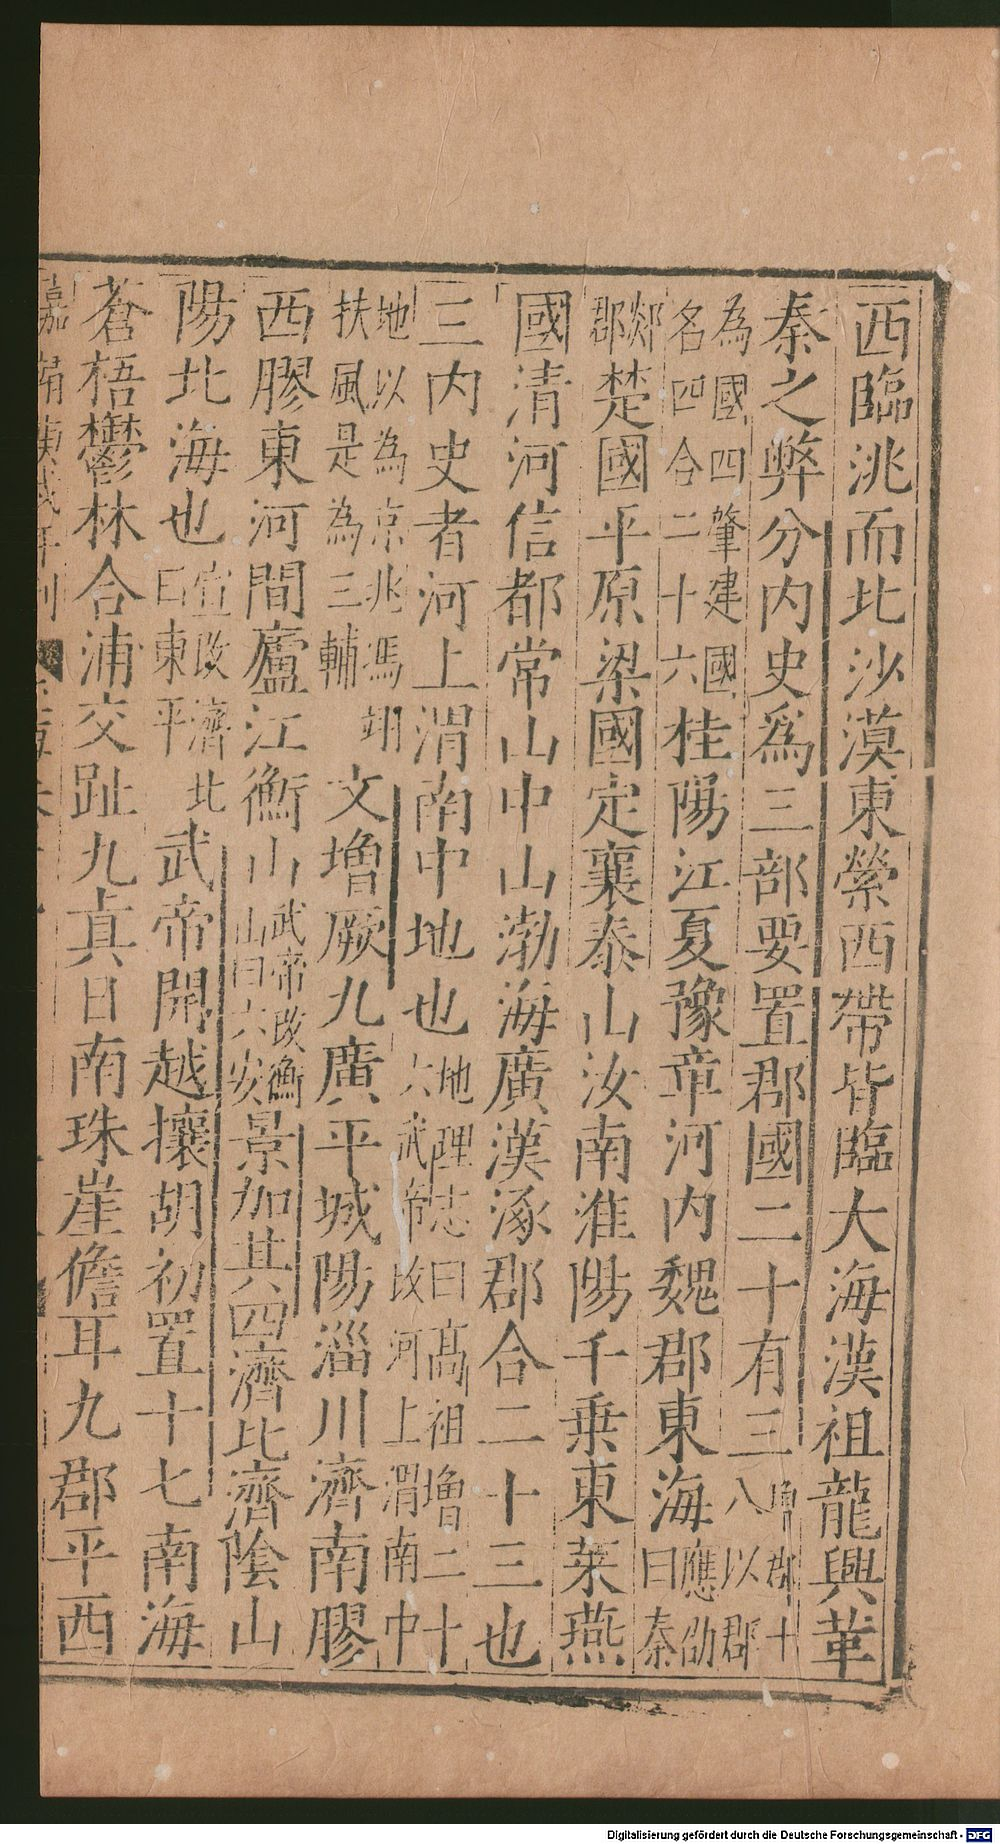 西臨洮而北沙漠東縈西帶皆臨大海漢祖龍興革
秦之弊分内史爲三部要置郡國二十有三
郡十
八以郡
為國四肇建國
名四合二十六
桂陽江夏豫章河内魏郡東海
應劭
曰秦
郯
郡
楚國平原梁國定襄泰山汝南淮陽千乗東萊燕
國清河信都常山中山渤海廣漢涿郡合二十三也
三内史者河上渭南中地也
地理志曰髙祖增二十
六武帝改河上渭南中
地以為京兆馮翊
扶風是為三輔
文増厥九廣平城陽淄川濟南膠
西膠東河間廬江衡山
武帝改衡
山曰六安
景加其四濟北濟陰山
陽北海也
宣改濟北
曰東平
武帝開越攘胡初置十七南海
蒼梧鬱林合浦交趾九真日南珠崖儋耳九郡平西
嘉靖庚戌年刊
Digitalisierung gefördert durch die Deutsche Forschungsgemeinschaft - DFG